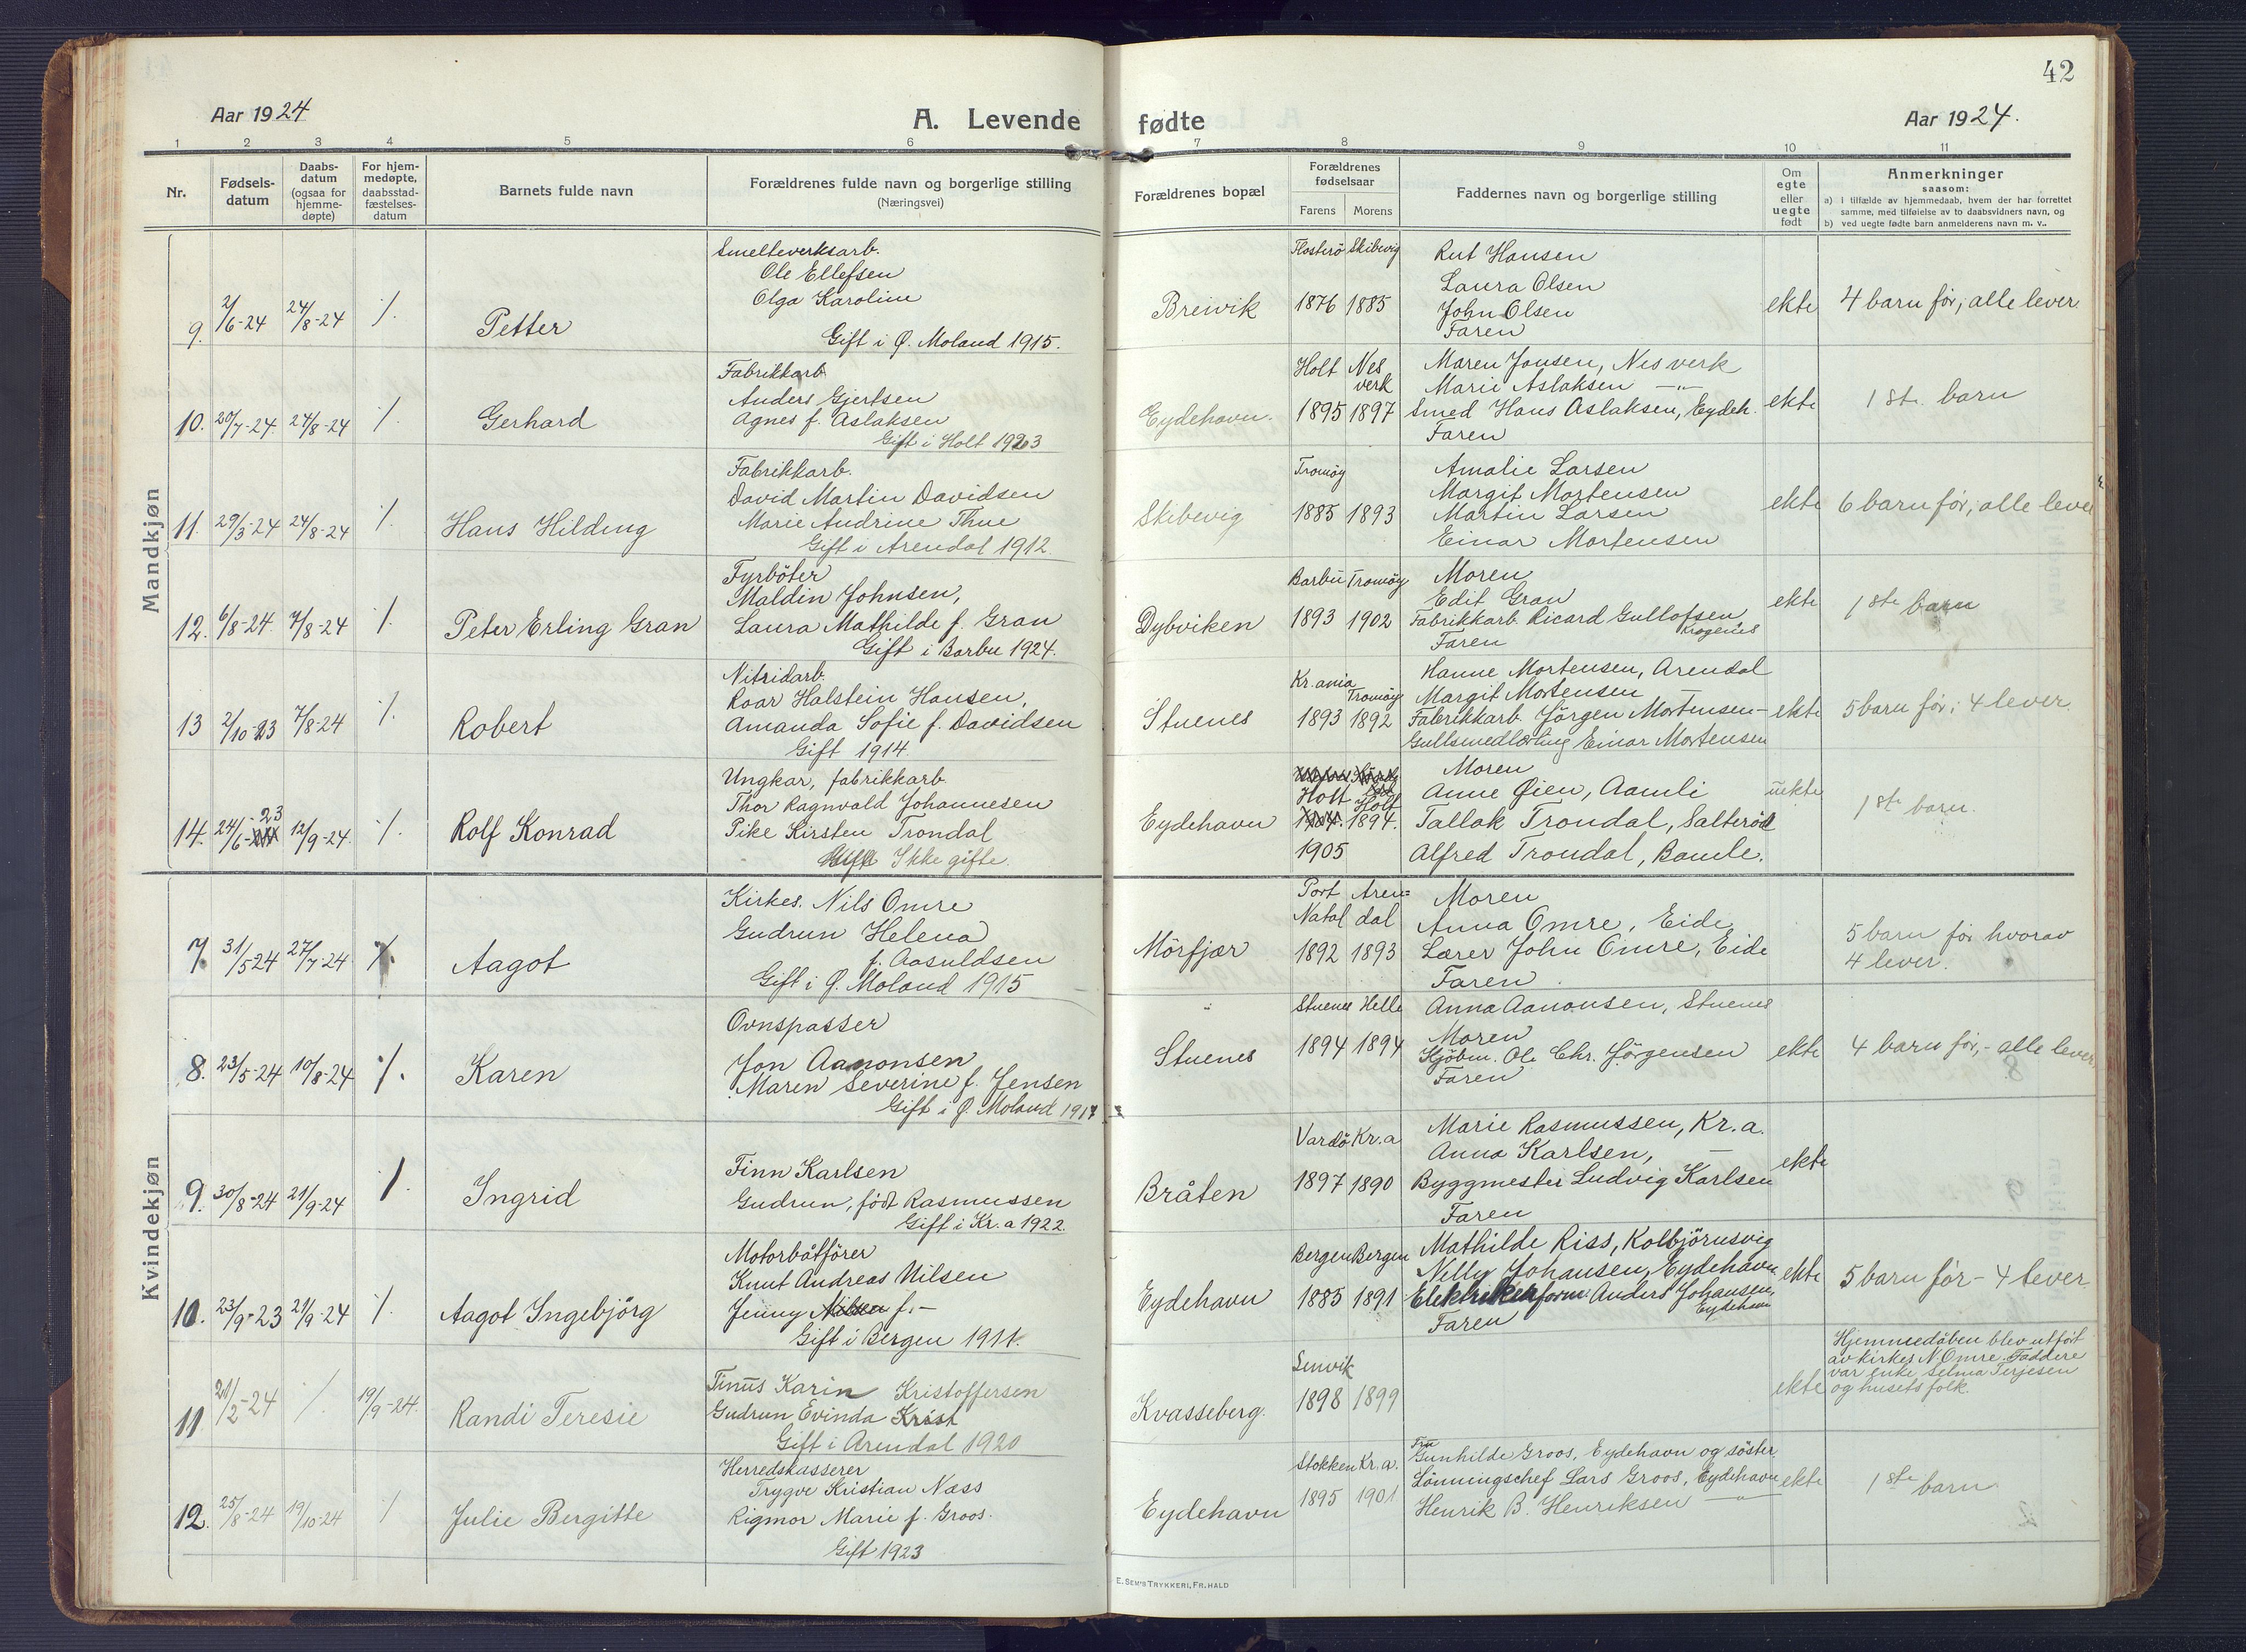 42
Aar 1924
A. Levende
fødte
Aar 1924.
1 2 3 4 5 6 7 8 9 10 11
Nr.
Fødsels-
datum
Daabs-
datum
(ogsaa for
hjemme-
døpte)
For hjem-
medøpte,
daabsstad-
fæstelses-
datum
Barnets fulde navn
Forældrenes fulde navn og borgerlige stilling
(Næringsvei)
Forældrenes bopæl
Forældrenes
fødselsaar
Farens Morens
Faddernes navn og borgerlige stilling
Om
egte
eller
uegte
født
Anmerkninger
saasom:
a) I tilfælde av hjemmedaab, hvem der har forrettet
samme, med tilføielse av to daabsvidners navn, og
b) ved uegte fødte barn anmelderens navn m. v..
Mandkjøn
9. 2/6-24 24/8-24 ./. Petter
Smelteverksarb.
Ole Ellefsen
Olga Karoline
Gift i Ø. Moland 1915.
Breivik
Flosterö Skibevig
1876 1885
Rut Hansen
Laura Olsen
John Olsen
Faren
ekte
4 barn før, alle lever.
10. 20/7-24. 24/8-24 ./. Gerhard
Fabrikkarb.
Anders Gjertsen
Agnes f. Aslaksen
Gift i Holt 1923
Eydehavn.
Holt Nes
verk
1895 1897
Maren Jonsen, Nes verk
Marie Aslaksen —"—
Smed Hans Aslaksen, Eydeh.
Faren
ekte
1ste barn
11. 29/3-24 24/8-24 ./. Hans Hilding
Fabrikkarb.
David Martin Davidsen
Marie Andrine Thue
Gift i Arendal 1912.
Skibevig
Tromøy
1885 1893
Amalie Larsen
Margit Mortensen
Martin Larsen
Einar Mortensen
ekte
6 barn før, alle lever
12. 6/8-24. 7/8-24 ./. Peter Erling Gran
Fyrböter
Maldin Johnsen,
Laura Mathilde f. Gran
Gift i Barbu 1924.
Dybviken
Barbu Tromøy
1893 1902
Moren
Edit Gran
Fabrikkarb. Ricard Gullofsen,
Kragenes
Faren
ekte
1ste barn
13 2/10-23 7/8-24 ./. Robert
Nitridarb.
Roar Halstein Hansen,
Amanda Sofie f. Davidsen
Gift 1914.
Stuenes
Kr.ania
Tromøy
1893 1892
Hanne Mortensen, Arendal
Margit Mortensen
Fabrikkarb. Jörgen Mortensen-
Gullsmedlærling Einar Mortensen
ekte
5 barn før, 4 lever.
14. 24/6-23 12/9-24. ./. Rolf Konrad
Ungkar, fabrikkarb.
Thor Ragnvald Johannesen
Pike Kirsten Trondal
Ikke gifte.
Eydehavn
Holt Holt
1904. 1894.
1905
Moren
Anne Øien, Aamli
Tallak Trondal, Salterød
Alfred Trondal, Bamle.
uekte
1ste barn.
Kvindekjøn
7. 31/5 24 27/7-24 ./. Aagot
Kirkes. Nils Omre
Gudrun Helena
f. Aasuldsen
Gift i Ø. Moland 1915
Mörfjær
Port Aren=
Natal dal
1892 1893
Moren
Anna Omre, Eide
Lærer John Omre, Eide
Faren
5 barn før hvorav
4 lever.
8. 23/5-24 10/8-24 ./. Karen
Ovnspasser
Jon Aanonsen
Maren Severine f. Jensen
Gift i Ø. Moland 1917
Stuenes
Stuenes Helle
1894 1894
Anna Aanonsen, Stuenes
Moren
Kjöbm. Ole Chr. Jörgensen
Faren
ekte
4 barn før, - alle lever.
9. 30/8-24 21/9-24 ./. Ingrid
Finn Karlsen
Gudrun, födt Rasmussen
Gift i Kr.a 1922.
Bråten
Vardö Kr.a
1897 1890
Marie Rasmussen, Kr.a.
Anna Karlsen, —
Byggmester Ludvig Karlsen
Faren
ekte
10. 23/9-23 21/9-24 ./. Aagot Ingebjörg
Motorbåtförer
Knut Andreas Nilsen
Jenny Nilsen f. —
Gift i Bergen 1911.
Eydehavn
Bergen Bergen
1885 1891
Mathilde Riss, Kolbjörnsvig
Nelly Johansen, Eydehavn
Elektrikerform. Anders Johansen,
Eydehavn
Faren
ekte
5 barn før - 4 lever
11 21/2-24 ./. 19/9-24. Randi Teresie
Tinus Karin Kristoffersen
Gudrun Evinda Krist
Gift i Arendal 1920
Kvasseberg.
Senvik
1898 1899
ekte
Hjemmedåben blev utført
av kirkes. N. Omre. Faddere
var enke Selma Terjesen
og husets folk.
12. 25/8-24 19/10-24 ./. Julie Bergitte
Herredskasserer
Trygve Kristian Næss
Rigmor Marie f. Groos.
Gift 1923
Eydehavn
Stokken Kr.a.
1895 1901
Fru
Gunhilde Groos, Eydehavn og söster.
Lönningschef Lars Groos, Eydehavn
Henrik B. Henriksen —"—
ekte
1ste barn
E. Sem's Trykkeri, Fr.hald